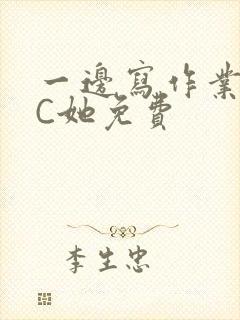 一邊寫作業
C她免費
李生忠